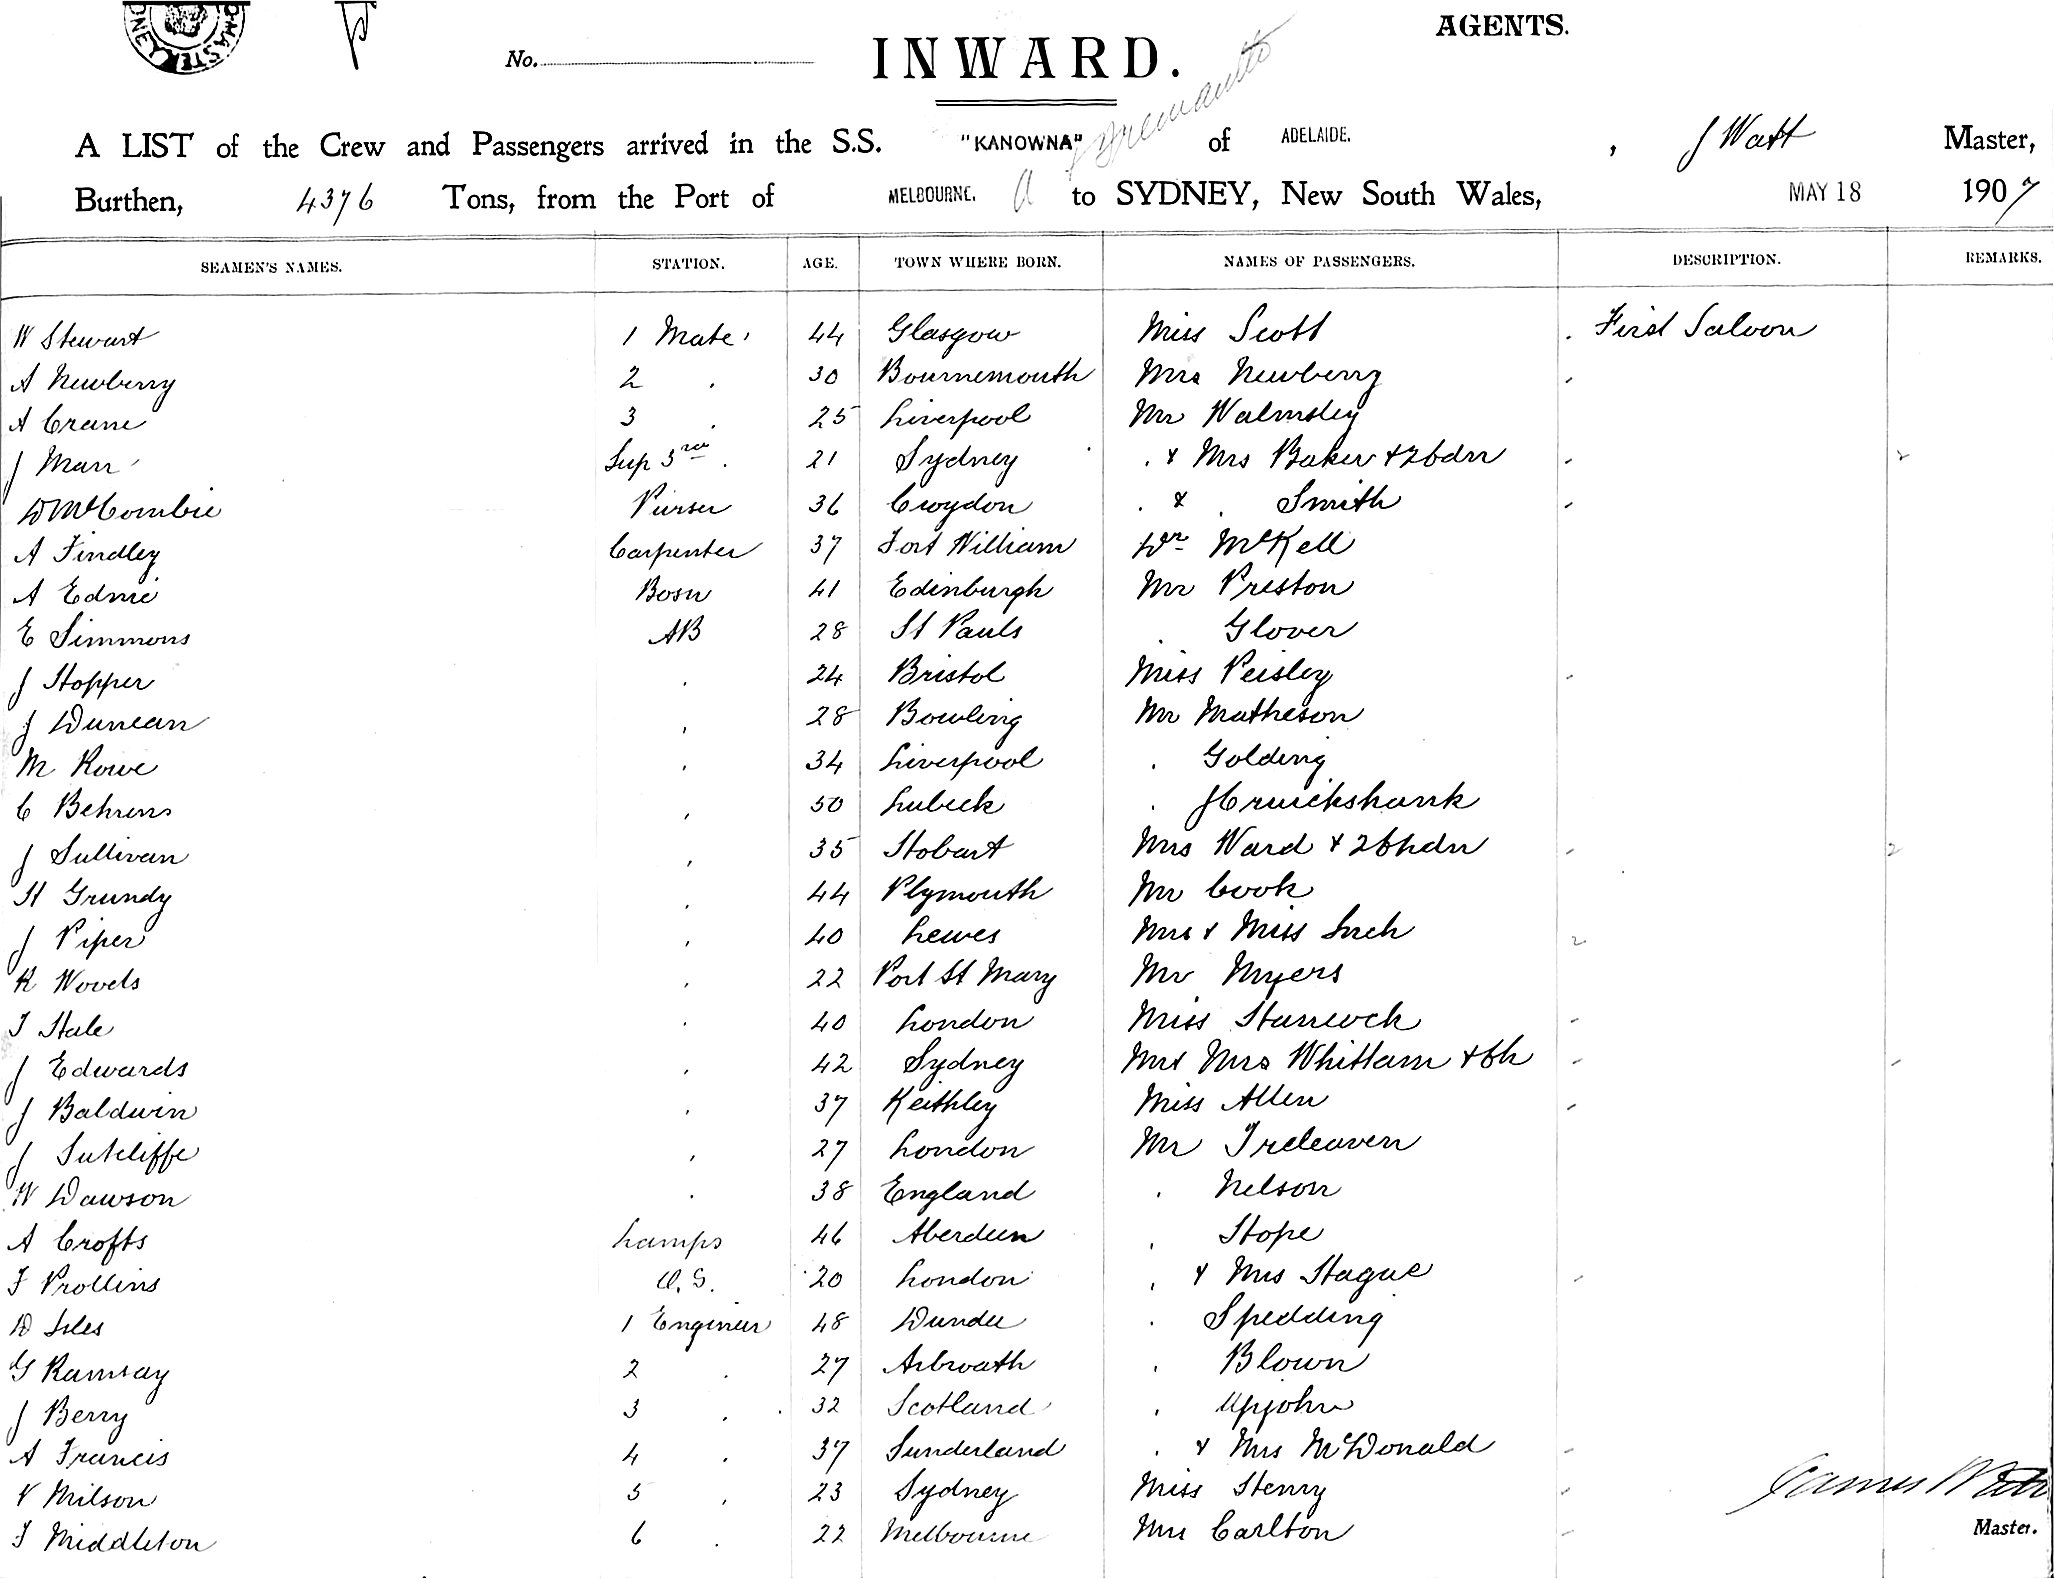 AGENTS.
No.
INWARD.
Fremantle
A LIST of the Crew and Passengers arrived in the S.S. "KANOWNA" of ADELAIDE. , J Watt Master,
Burthen, 4376 Tons, from the Port of MELBOURNE. to SYDNEY, New South Wales, MAY 18 1907
SEAMEN'S NAMES. STATION. AGE. TOWN WHERE BORN. NAMES OF PASSENGERS. DESCRIPTION. REMARKS.
W Stewart 1 Mate 44 Glasgow Miss Scott First Saloon
A Newberry 2 . 30 Bournemouth Mrs Newberry
A Crane 3 . 25 Liverpool Mr Walmsley
J Marr Sup 3rd . 21 Sydney . & Mrs Baker & 2 Cdn 2
D McCombie Purser 36 Croydon . & . Smith
A Findley Carpenter 37 Fort William Dr McKell
A Edmie Bosn 41 Edinburgh Mr Preston
E Simmons AB 28 St Pauls . Glover
J Hopper . 24 Bristol Miss Peisley
J Duncan . 28 Bowling Mr Matheson
M Rowe . 34 Liverpool . Golding
C Behrens . 50 Lubeck . J Cruickshank
J Sullivan . 35 Hobart Mrs Ward & 2 Chdn 2
H Grundy . 44 Plymouth Mr Cook
J Piper . 40 Lewes Mrs & Miss Inch 2
R Woods . 22 Port St Mary Mr Myers
T Hale . 40 London Miss Hancock
J Edwards . 42 Sydney Mr & Mrs Whittam & Ch
J Baldwin . 37 Keithley Miss Allen
J Sutcliffe . 27 London Mr Treleaven
W Dawson . 38 England . Nelson
A Crofts Lamps 46 Aberdeen . Hope
F Prollins O.S. 20 London . & Mrs Hague
D Isles 1 Engineer 48 Dundee . Spedding
G Ramsay 2 . 27 Arbroath . Blown
J Berry 3 . 32 Scotland . Upjohn
A Francis 4 . 37 Sunderland . & Mrs McDonald
V Milson 5 . 23 Sydney Miss Henry James Watt
T Middleton 6 . 22 Melbourne Mrs Carlton Master.